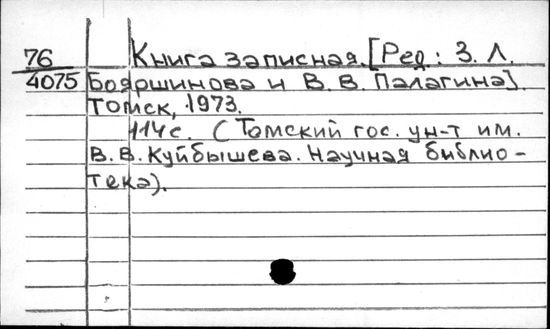 76 Книга записная. [Ред.: З. Л.
4075 Бояршинова и В. В. Палагина].
Томск, 1973.
114 с. (Томский гос. ун-т им.
В. В. Куйбышева. Научная библио-
тека).